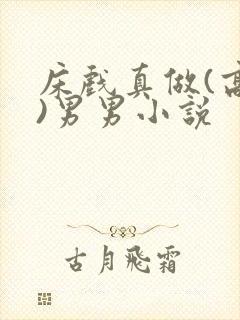 床戏真做(高
)男男小説
古月飛霜